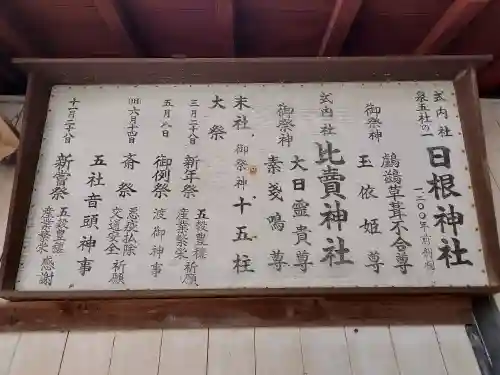 式内社
泉五社の一
日根神社
一二〇〇年前創祀
御祭神
鸕鷀草葺不合尊
玉依姫尊
式内社
比賣神社
御祭神
大日霊貴尊
素戔鳴尊
末社 御祭神 十五柱
大祭
三月二十八日 新年祭 五穀豊穣 産業繁栄 祈願
五月八日 御例祭 波御神事
旧六月十四日 斎祭 悪疫払除 交通安全 祈願
五社音頭神事
十一月二十八日 新嘗祭 五穀豊穣 産業繁栄 感謝